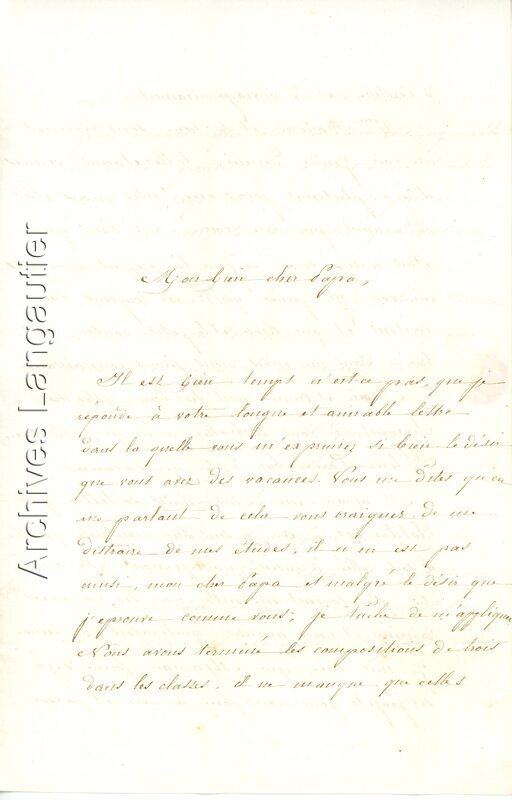 Mon bien cher Papa,
Il est bien temps n'est ce pas, que je
réponde à votre longue et aimable lettre
dans la quelle vous m'exprimez si bien le désir
que vous avez des vacances. Vous me dites qu'en
me parlant de cela vous craignez de me
distraire de mes études, il n'en est pas
ainsi, mon cher Papa et malgré le désir que
j'éprouve comme vous, je tâche de m'appliquer
Nous avons terminé les compositions de trois
dans les classes, il ne manque que celles
Archives Langautier